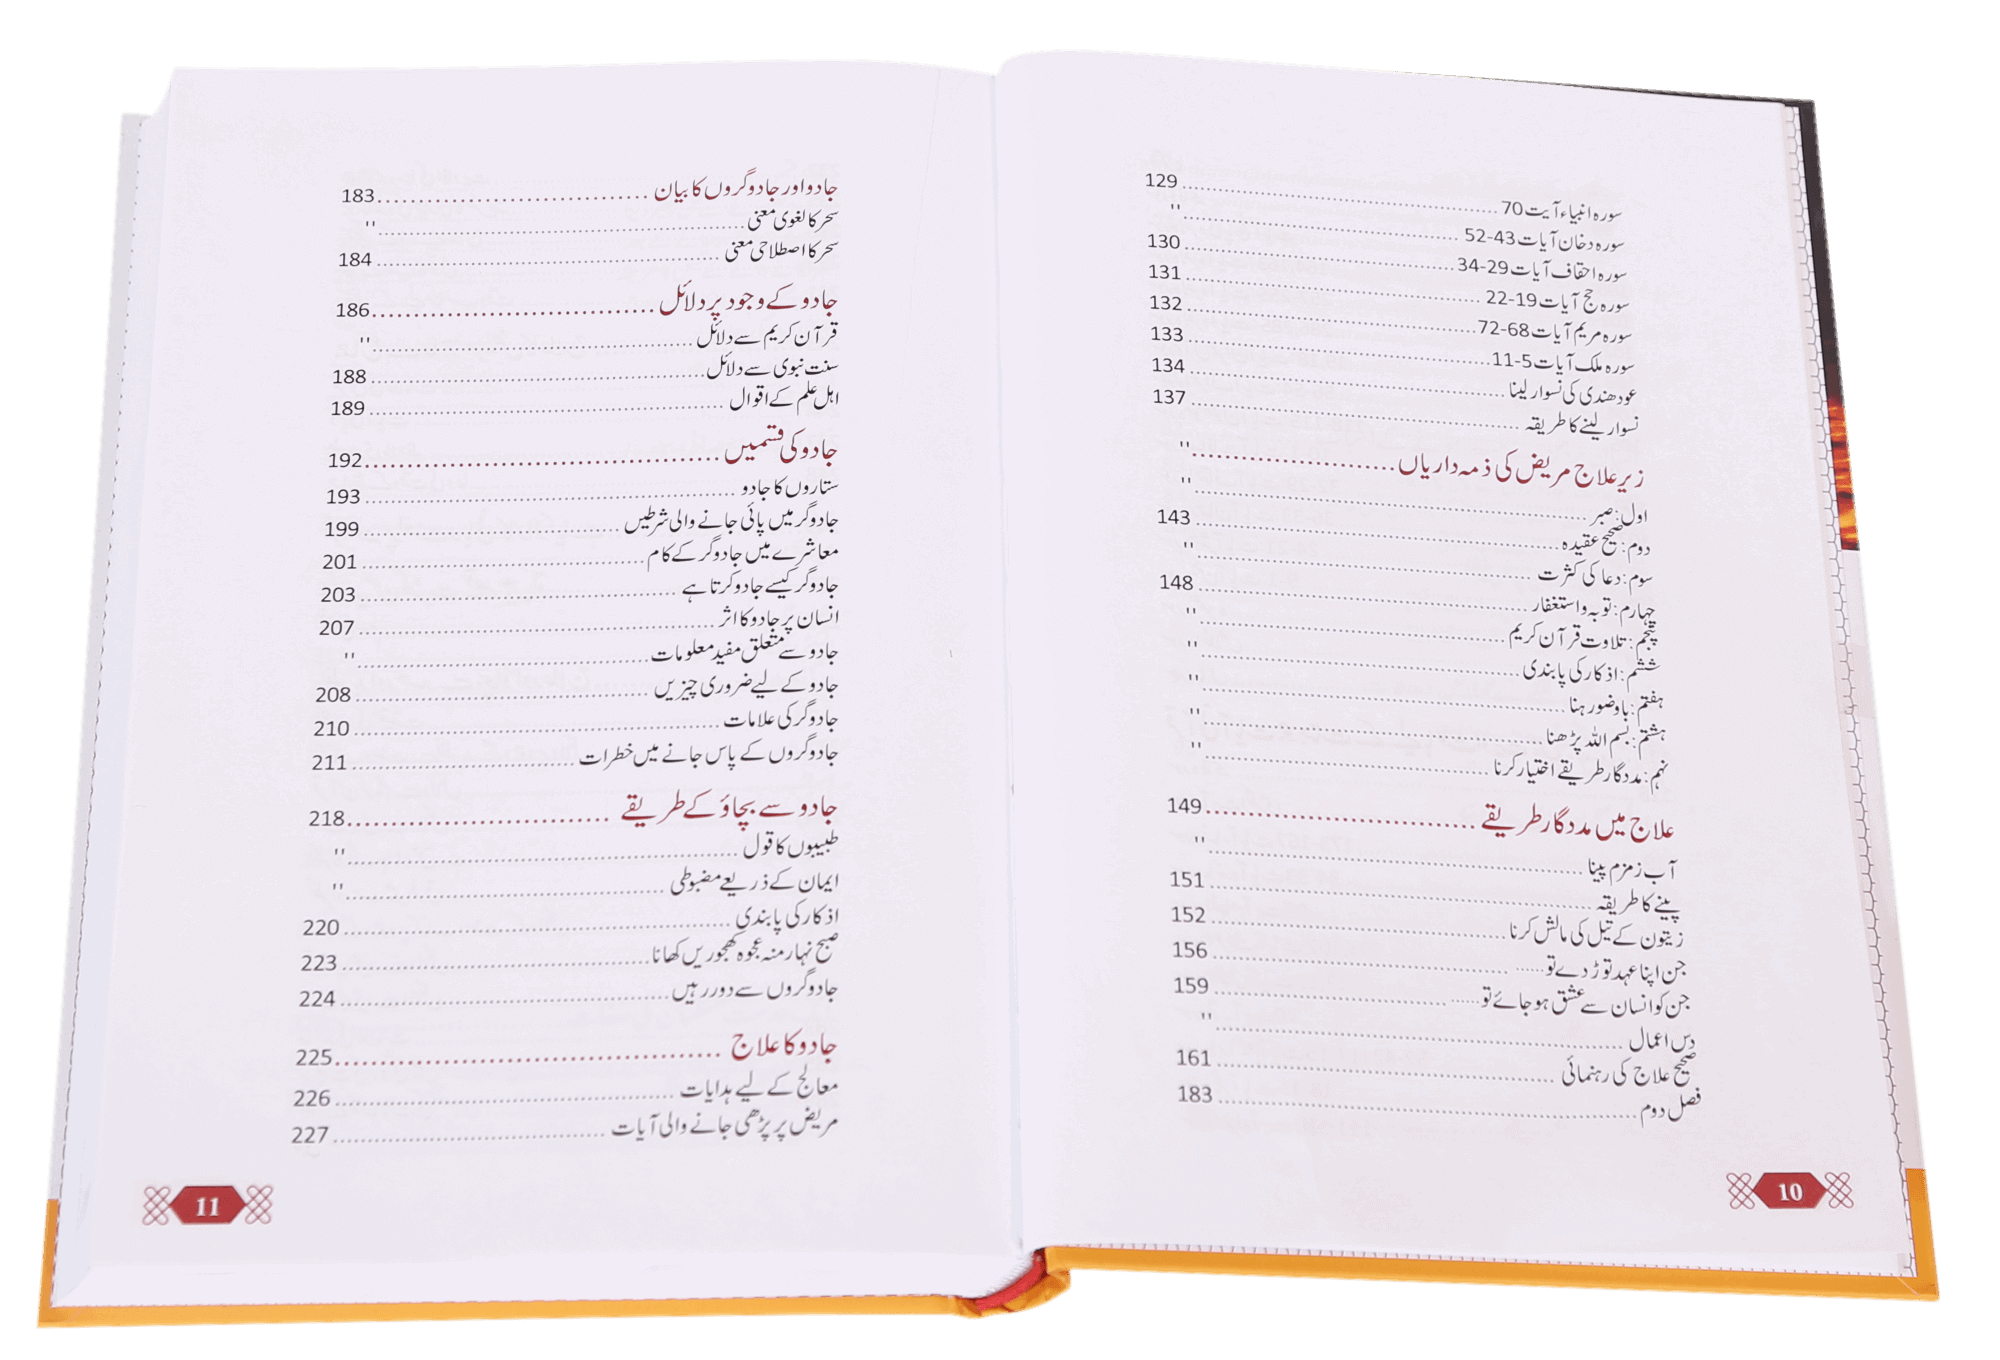 سورہ انبیاء آیت 70 ........ 129
سورہ دخان آیات 43-52 ........ "
سورہ احقاف آیات 29-34 ........ 130
سورہ حج آیات 19-22 ........ 131
سورہ مریم آیات 68-72 ........ 132
سورہ ملک آیات 5-11 ........ 133
عود ھندی کی نسوار لینا ........ 134
نسوار لینے کا طریقہ ........ 137
زیر علاج مریض کی ذمہ داریاں ........ "
اول: صبر ........ "
دوم: صحیح عقیدہ ........ 143
سوم: دعا کی کثرت ........ "
چہارم: توبہ و استغفار ........ 148
پنجم: تلاوت قرآن کریم ........ "
ششم: اذکار کی پابندی ........ "
ہفتم: باوضو رہنا ........ "
ہشتم: بسم اللہ پڑھنا ........ "
نہم: مددگار طریقے اختیار کرنا ........ "
علاج میں مددگار طریقے ........ 149
آب زمزم پینا ........ "
پینے کا طریقہ ........ 151
زیتون کے تیل کی مالش کرنا ........ 152
جن اپنا عہد توڑ دے تو ...... ........ 156
جن کو انسان سے عشق ہو جائے تو ...... ........ 159
دس اعمال ........ "
صحیح علاج کی رہنمائی ........ 161
فصل دوم ........ 183
10
جادو اور جادوگروں کا بیان ........ 183
سحر کا لغوی معنی ........ "
سحر کا اصطلاحی معنی ........ 184
جادو کے وجود پر دلائل ........ 186
قرآن کریم سے دلائل ........ "
سنت نبوی سے دلائل ........ 188
اہل علم کے اقوال ........ 189
جادو کی قسمیں ........ 192
ستاروں کا جادو ........ 193
جادوگر میں پائی جانے والی شرطیں ........ 199
معاشرے میں جادوگر کے کام ........ 201
جادوگر کیسے جادو کرتا ہے ........ 203
انسان پر جادو کا اثر ........ 207
جادو سے متعلق مفید معلومات ........ "
جادو کے لیے ضروری چیزیں ........ 208
جادوگر کی علامات ........ 210
جادوگروں کے پاس جانے میں خطرات ........ 211
جادو سے بچاؤ کے طریقے ........ 218
طبیبوں کا قول ........ "
ایمان کے ذریعے مضبوطی ........ "
اذکار کی پابندی ........ 220
صبح نہار منہ عجوہ کھجوریں کھانا ........ 223
جادوگروں سے دور رہیں ........ 224
جادو کا علاج ........ 225
معالج کے لیے ہدایات ........ 226
مریض پر پڑھی جانے والی آیات ........ 227
11